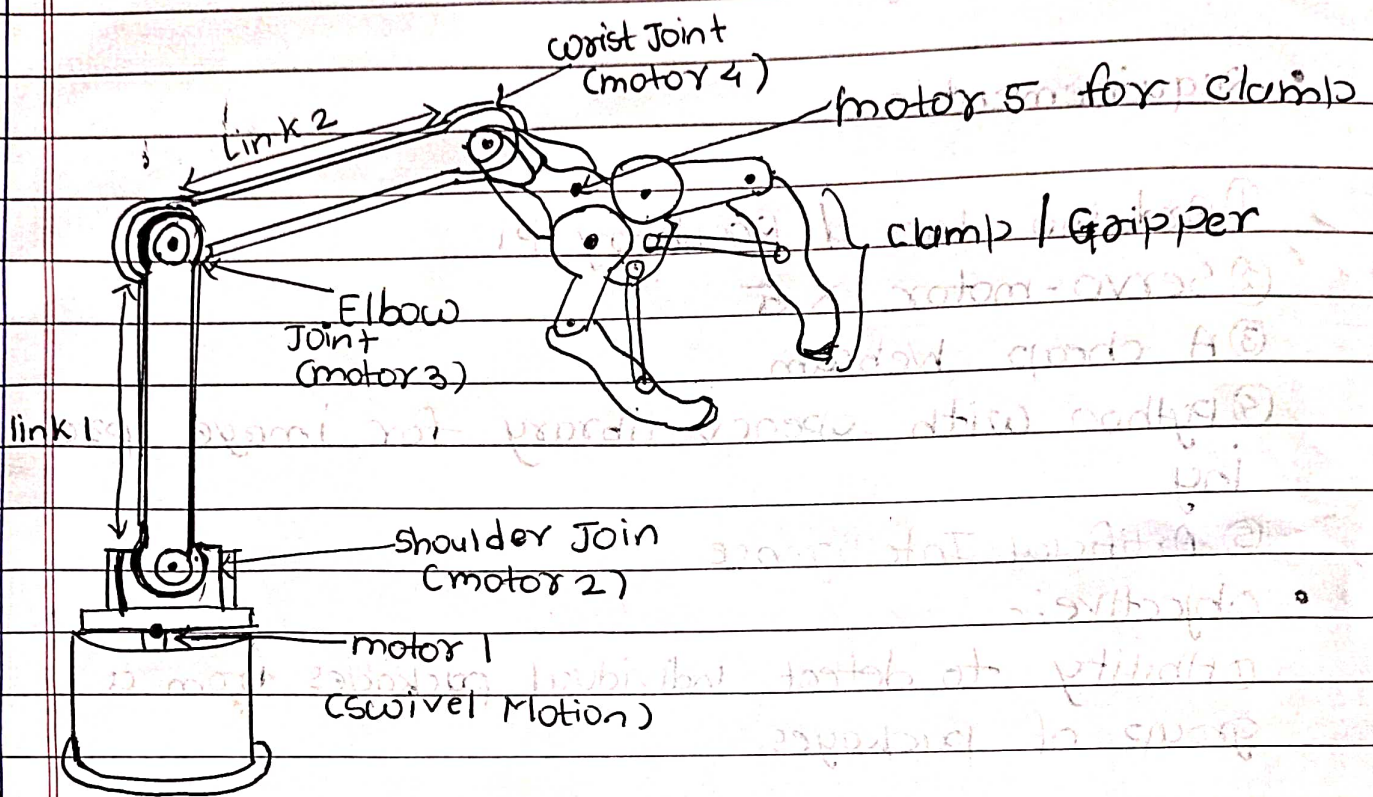 Wrist Joint
(motor 4)
motor 5 for clamp
Link 2
clamp / Gripper
Elbow
Joint
(motor 3)
link 1
Shoulder Join
(motor 2)
motor 1
(Swivel Motion)